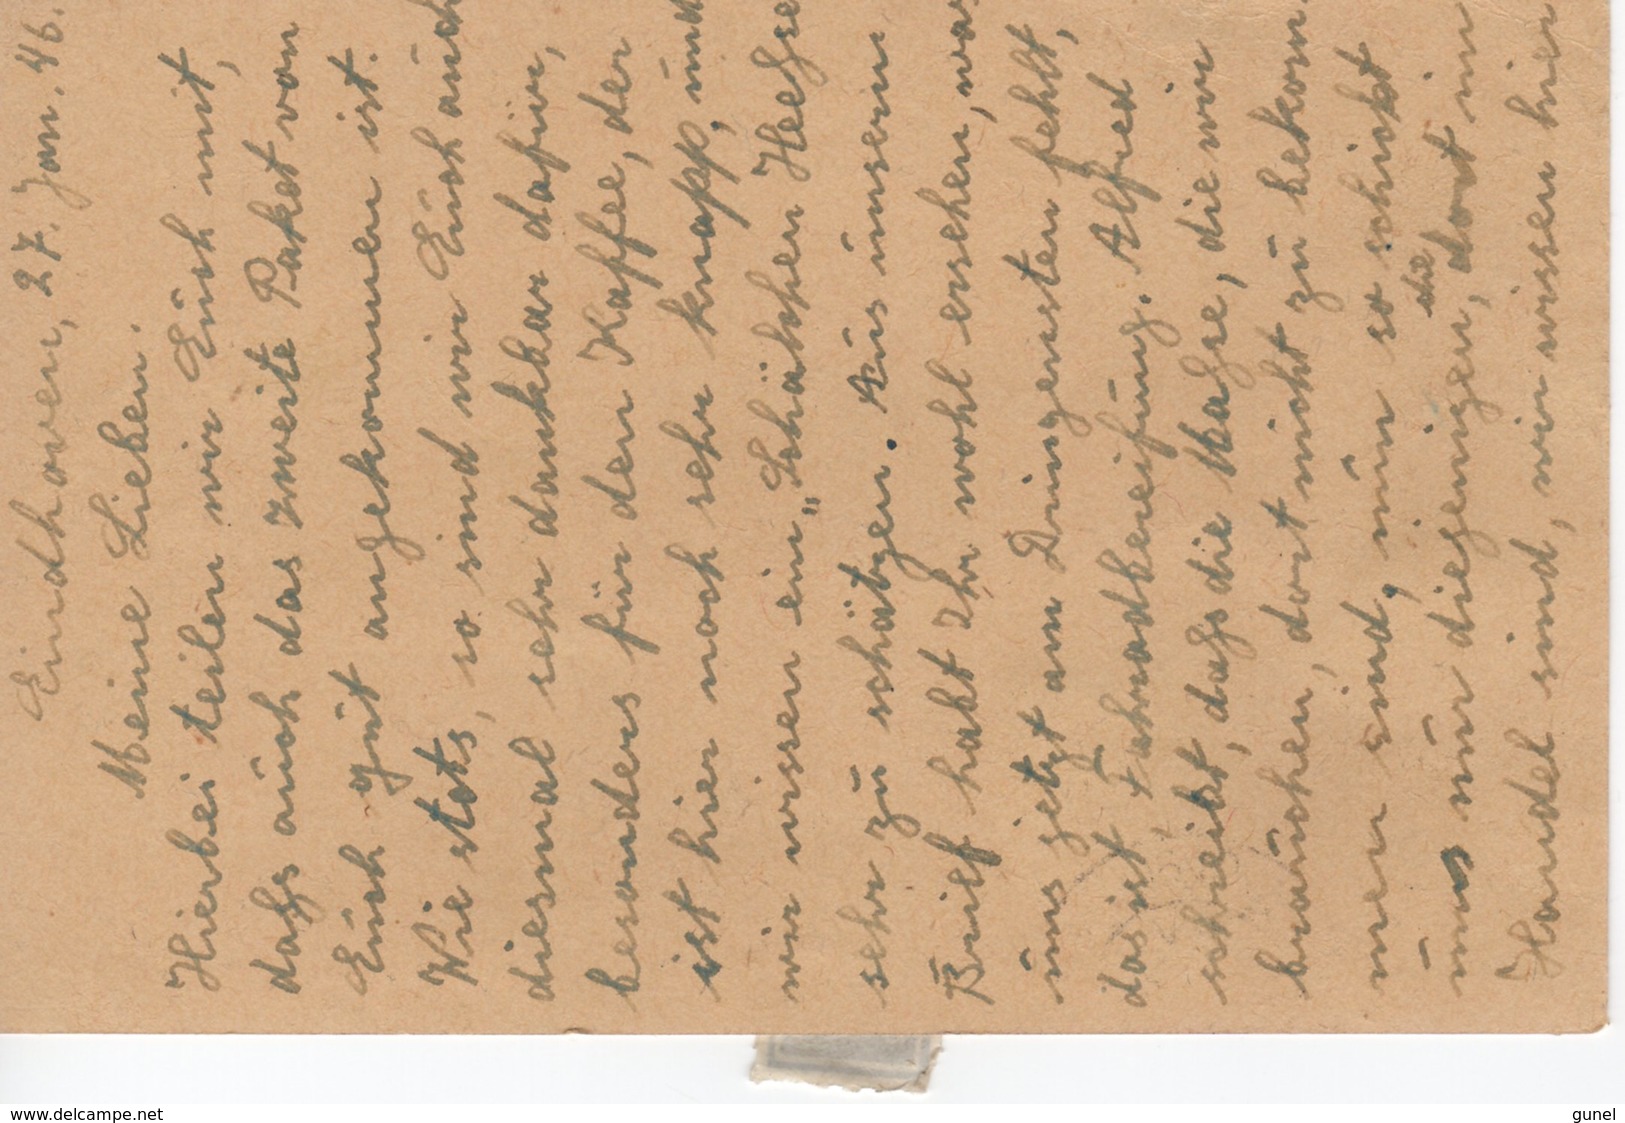 Eindhoven, 27. Jan. 46.
Meine Lieben.
Hierbei teilen wir Euch mit,
dahs auch das zweite Paket von
Euch gut angekommen ist.
Wie stets, so sind wir Euch auch
diesmal sehr dankbar dafür,
besonders für den Kaffee, der
ist hier noch sehr knapp, und
wir wissen ein „Schälchen Heehse
sehr zu schätzen. Aus unserm
Brief habt Ihr wohl ersehen, was
uns jetzt am Dringensten fehlt,
das ist Fahrradbereifung. Alfred
schreibt, dahs die Mahse, die wir
brauchen, dort nicht zu bekom-
men sind, nun so schickt
uns nur diejenigen, die dort im
Handel sind, wir wissen hier
www.delcampe.net
gunel